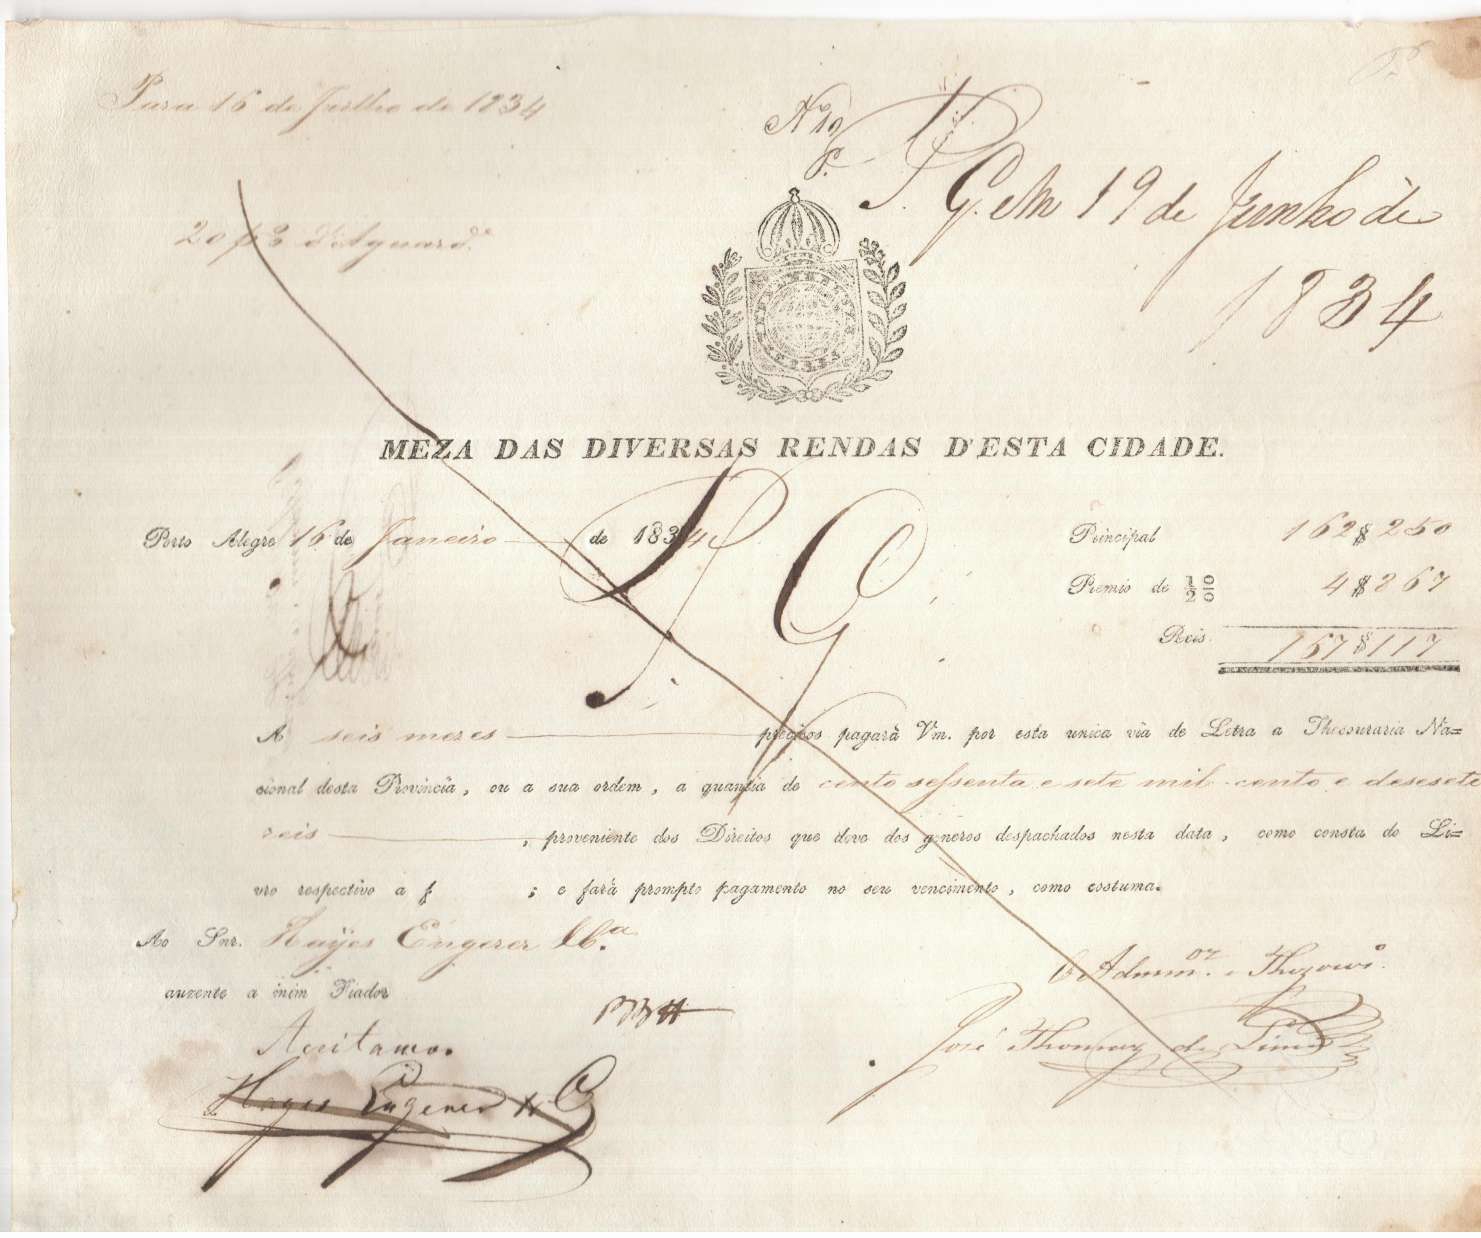 Para 16 de Julho de 1834
Nº 19
P. G. em 19 de Junho de
1834
20 pes d'Aguard.e
MEZA DAS DIVERSAS RENDAS D'ESTA CIDADE.
Porto Alegre 16 de Janeiro de 1834
P. G.
Principal 162$250
Premio de 1/2 0/0 4$867
Reis 167$117
A seis mezes precisos pagará Vm. por esta unica via de Letra a Thesouraria Na=
cional desta Provincia, ou a sua ordem, a quantia de cento sessenta e sete mil cento e desesete
reis, proveniente dos Direitos que deve dos generos despachados nesta data, como consta do Li=
vro respectivo a f ; e fará prompto pagamento no seu vencimento, como costuma.
Ao Snr. Hayes Engerer & C.ª
auzente a mim Fiador
O Admin.or e Thezour.o
Aceitamos.
José Thomaz de Lima
Hayes Engerer & C